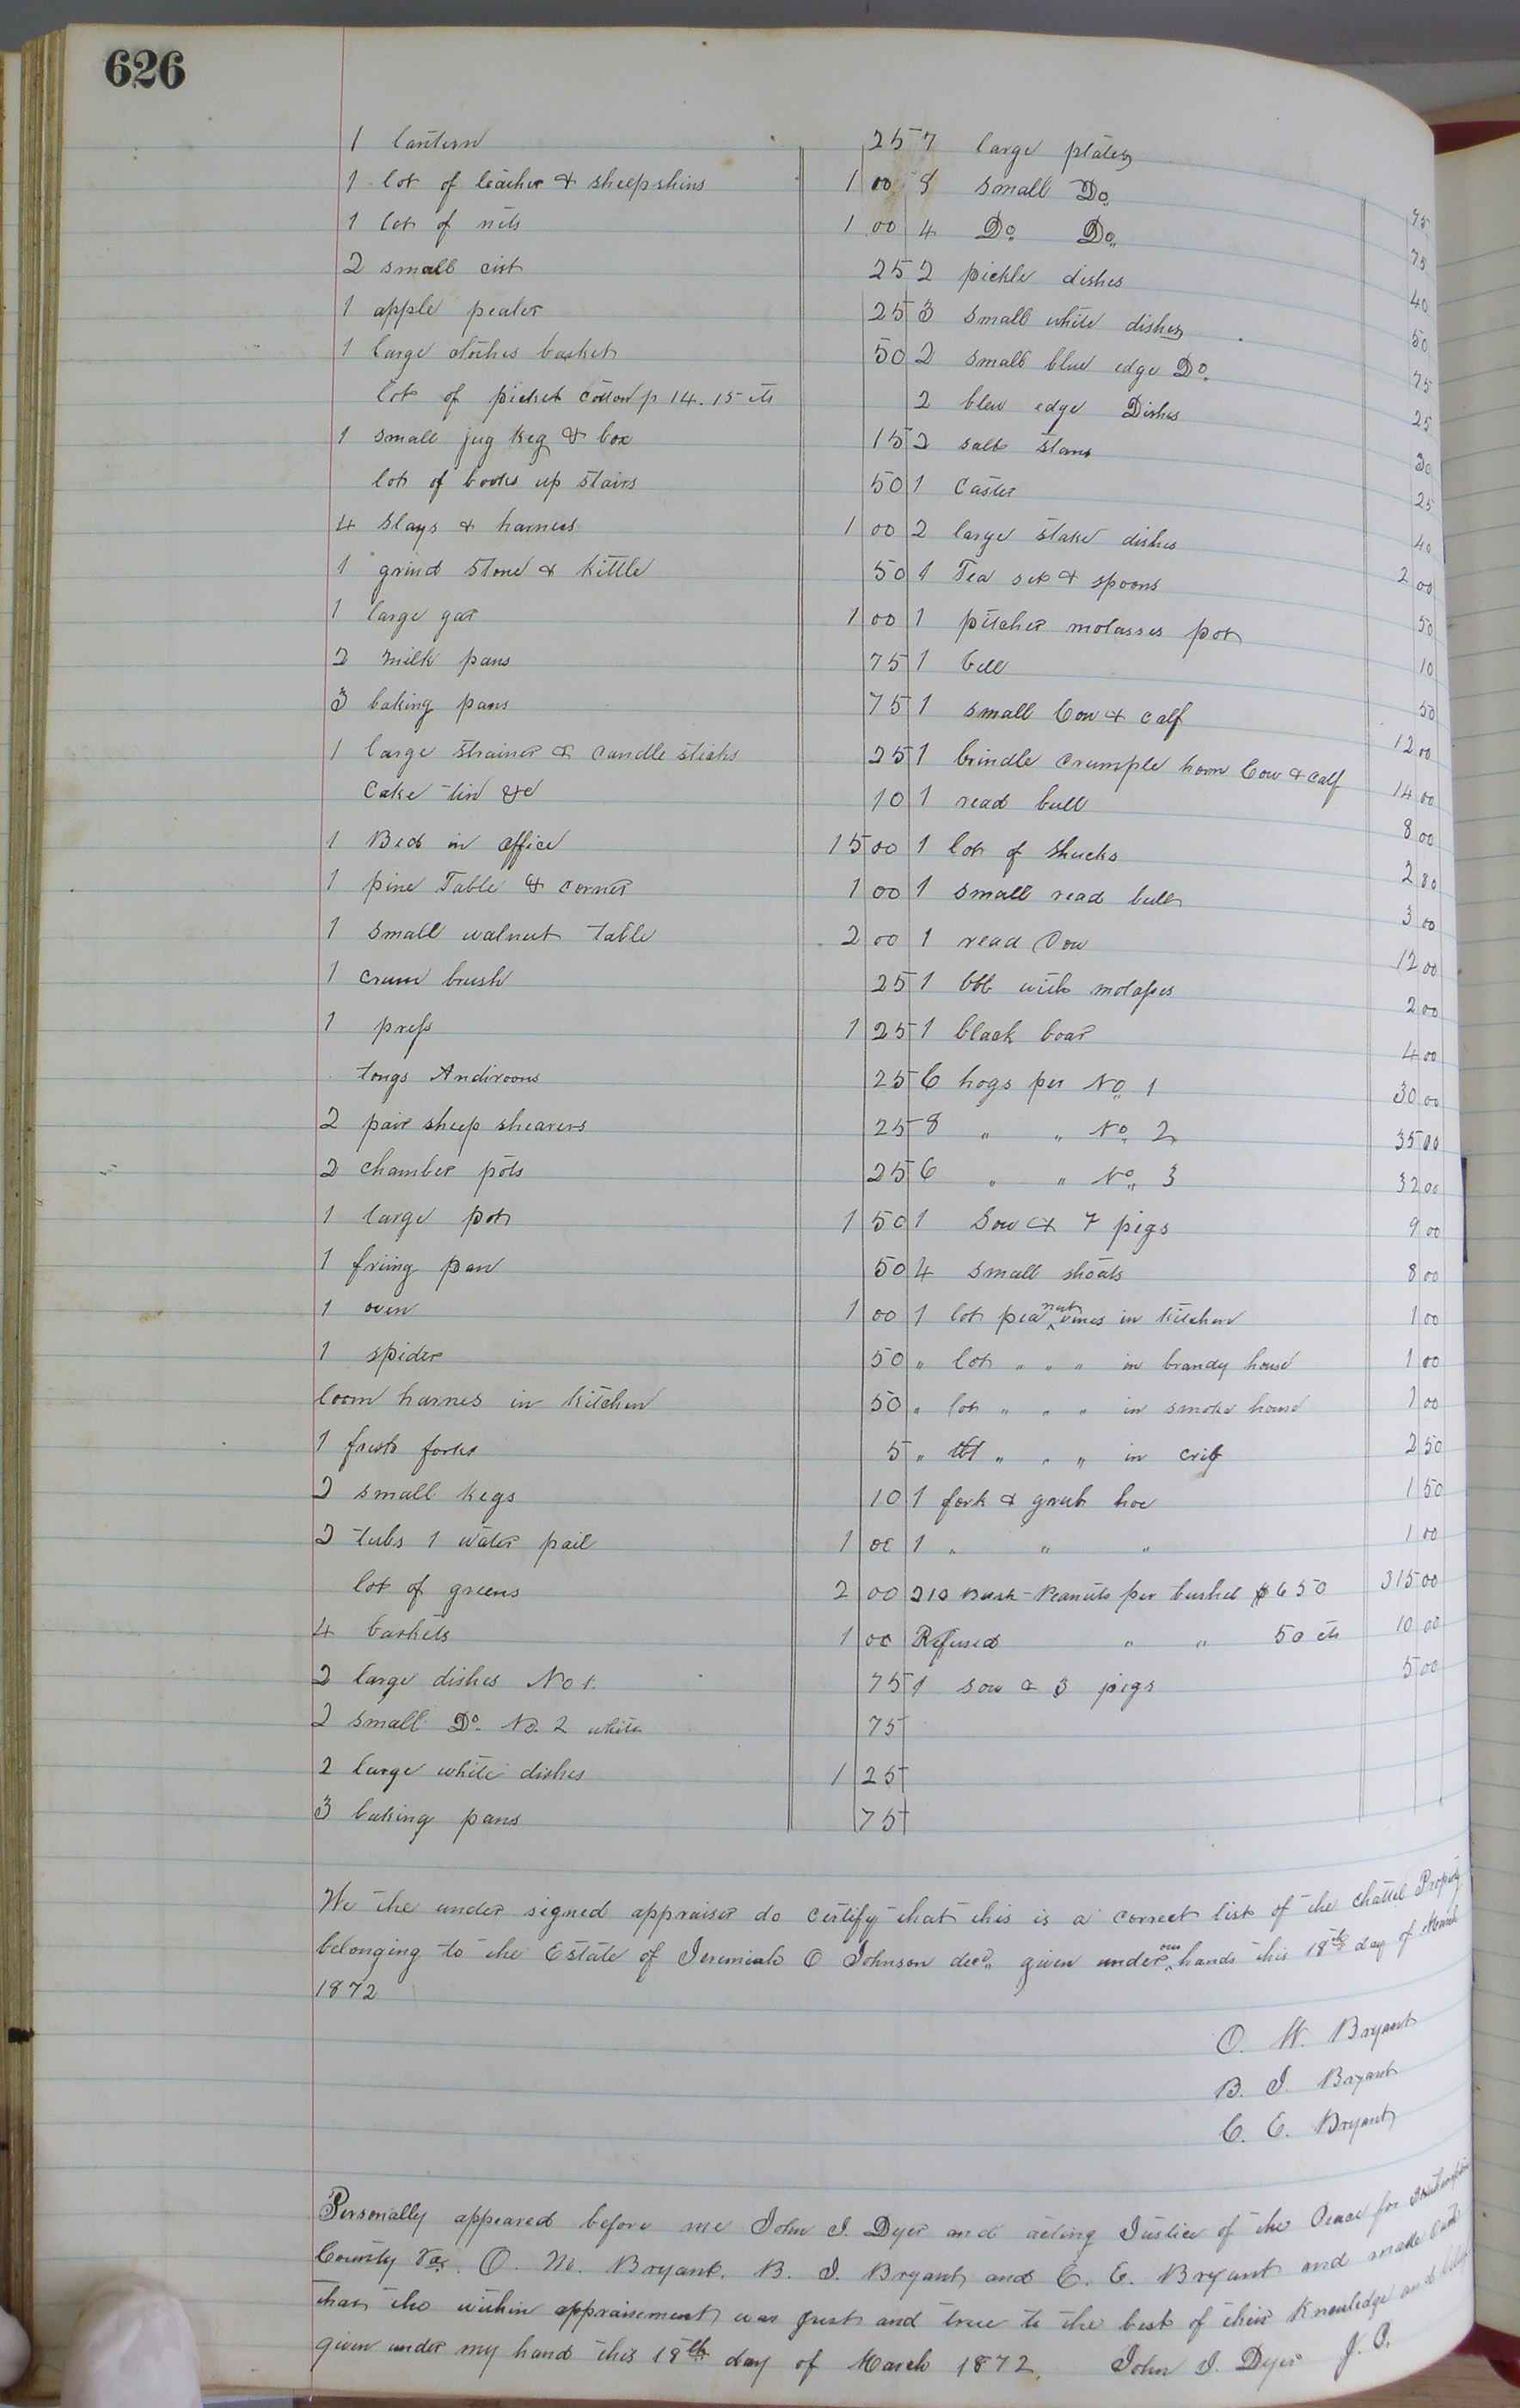 626
1 lantern 25
1 lot of leather & sheepskins 1 00
1 lot of nets 1 00
2 small cist 25
1 apple pealer 25
1 large clothes basket 50
lot of picket cotton p 14. 15 cts
1 small jug keg & box 15
lot of books up stairs 50
4 slays & harness 1 00
1 grind stone & kittle 50
1 large gar 1 00
2 milk pans 75
3 baking pans 75
1 large strainer & candle sticks 25
Cake tin &c 10
1 Bed in office 15 00
1 pine Table & corner 1 00
1 small walnut table 2 00
1 crum brush 25
1 press 1 25
tongs Andiroons 25
2 pair sheep shearers 25
2 chamber pots 25
1 large pot 1 50
1 friing pan 50
1 oven 1 00
1 spider 50
loom harnes in kitchen 50
1 forks 5
2 small kegs 10
2 tubs 1 water pail 1 00
lot of greens 2 00
4 baskets 1 00
2 large dishes No 1. 75
2 small Do. No. 2 white 75
2 large white dishes 1 25
3 baking pans 75
7 large plates 75
8 small Do. 75
4 Do. Do. 40
2 pickle dishes 50
3 small white dishes 75
2 small blue edge Do. 25
2 blew edge Dishes 30
2 salt stans 25
1 Caster 40
2 large stake dishes 2 00
1 Tea set & spoons 50
1 pitcher molasses pot 10
1 bell 50
1 small Cow & calf 12 00
1 brindle crumple horn Cow & calf 14 00
1 read bull 8 00
1 lot of shucks 2 80
1 small read bull 3 00
1 read Cow 12 00
1 bbl with molasses 2 00
1 black boar 4 00
6 hogs per No. 1 30 00
8 " " No. 2 35 00
6 " " No. 3 32 00
1 Sow & 7 pigs 9 00
4 small shoats 8 00
1 lot pea nut vines in kitchen 1 00
" lot " " " in brandy house 1 00
" lot " " " in smoke house 1 00
" lot " " " in crib 2 50
1 fork & grub hoe 1 50
1 " " " 1 00
210 Bush Peanuts per bushel $ 6 50 315 00
Refused " " 50 cts 10 00
1 sow & 3 pigs 5 00
We the under signed appraiser do certify that this is a correct list of the chattel Property
belonging to the Estate of Jeremiah O Johnson decd. given under our hands this 18th day of March
1872
O. W. Bryant
B. J. Bryant
C. E. Bryant
Personally appeared before me John J. Dyer and acting Justice of the Peace for Southampton
County Va. O. W. Bryant. B. J. Bryant and C. E. Bryant and made oath
that the within appraisement was just and true to the best of their knowledge and belief
given under my hand this 18th day of March 1872. John J. Dyer J. P.